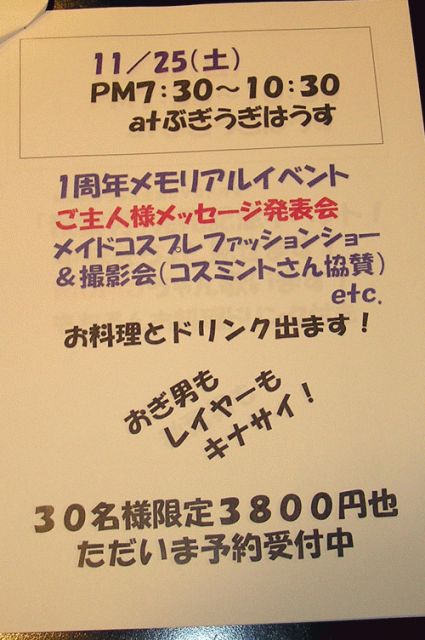 11／25(土)
PM7：30～10：30
atぶぎうぎはうす
1周年メモリアルイベント
ご主人様メッセージ発表会
メイドコスプレファッションショー
＆撮影会(コスミントさん協賛)
etc.
お料理とドリンク出ます！
おぎ男も
レイヤーも
キナサイ！
３０名様限定３８００円也
ただいま予約受付中